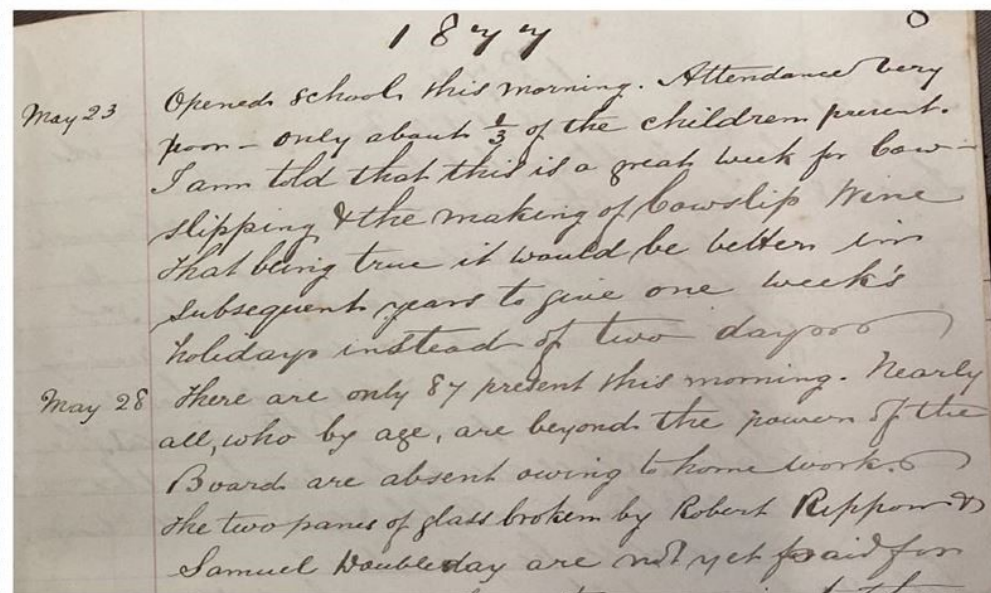 1877
8
May 23 Opened school this morning. Attendance very
poor - only about 1/3 of the children present.
I am told that this is a great week for Cow-
slipping & the making of Cowslip Wine
that being true it would be better in
subsequent years to give one week's
holidays instead of two days
May 28 There are only 87 present this morning. Nearly
all, who by age, are beyond the power of the
Board are absent owing to home work.
The two panes of glass broken by Robert Rippon &
Samuel Doubleday are not yet paid for